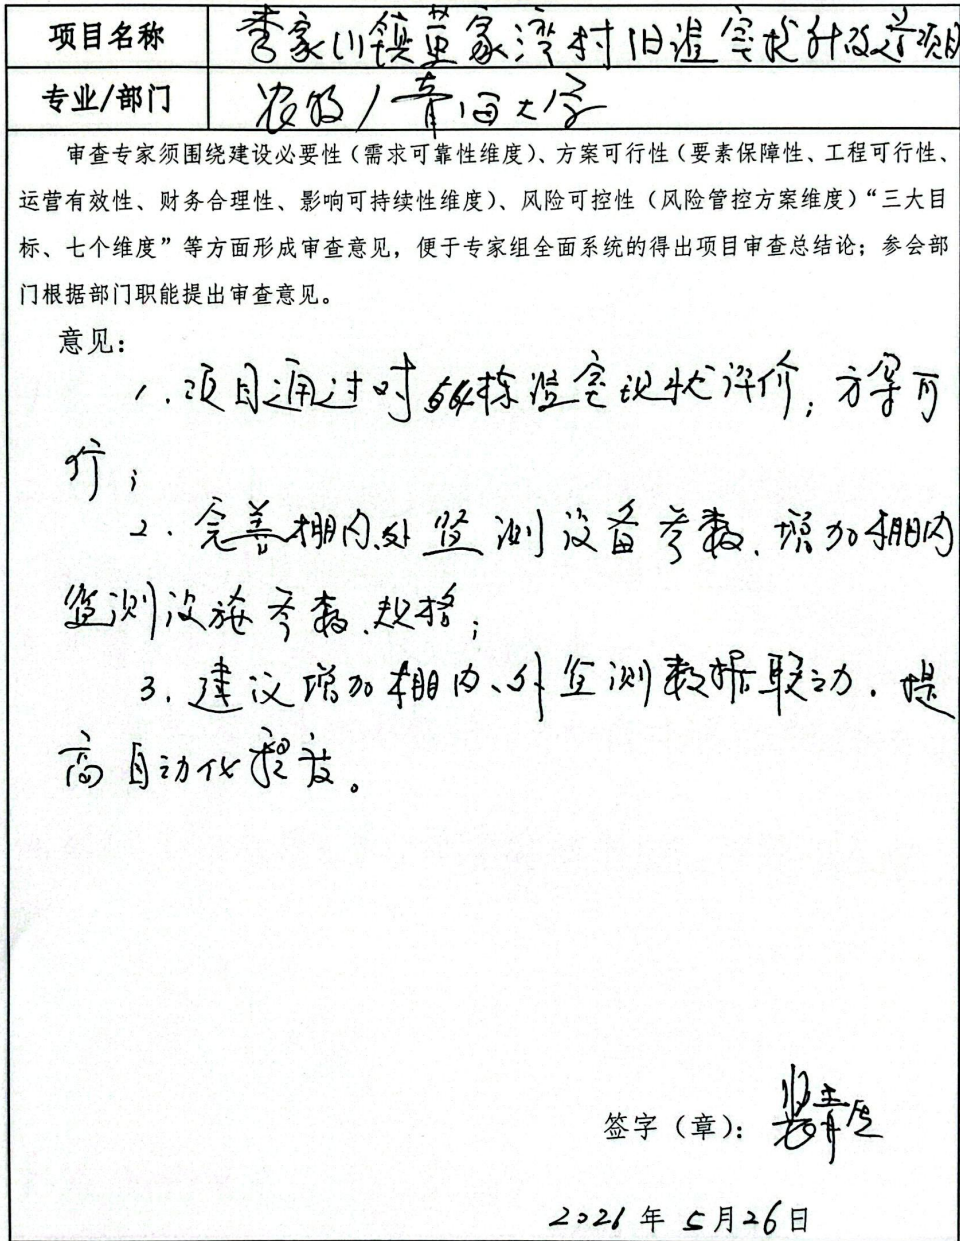 项目名称 李家山镇董家湾村旧温室提升改造项目
专业/部门 农牧/青海大学
审查专家须围绕建设必要性（需求可靠性维度）、方案可行性（要素保障性、工程可行性、
运营有效性、财务合理性、影响可持续性维度）、风险可控性（风险管控方案维度）“三大目
标、七个维度”等方面形成审查意见，便于专家组全面系统的得出项目审查总结论；参会部
门根据部门职能提出审查意见。
意见：
1.项目通过对64栋温室现状评价，方案可
行；
2.完善棚内外监测设备参数、增加棚内
监测设施参数、规格；
3.建议增加棚内、外监测数据联动，提
高自动化程度。
签字（章）：
2026年5月26日